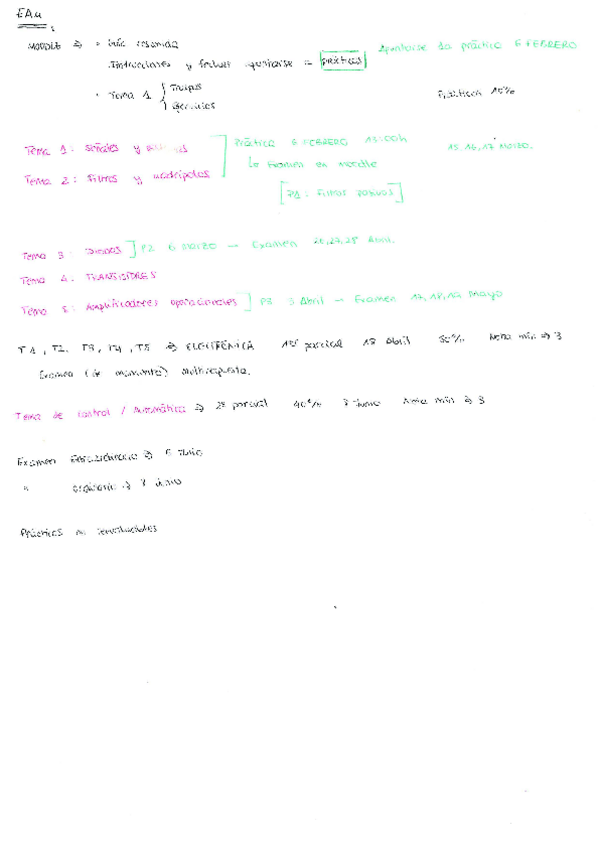 EAu
MOODLE ⇒ • Guía resumida
Instrucciones y fechas apuntarse a prácticas Apuntarse 1a práctica 6 FEBRERO
• Tema 1 { Transp
Ejercicios
Prácticas 10%
Tema 1: Señales y
Práctica 6 FEBRERO 13:00h
15, 16, 17 Marzo.
Tema 2: Filtros y cuadripolos
↳ Examen en moodle
[P1: Filtros pasivos]
Tema 3: Diodos ] P2 6 Marzo → Examen 26, 27, 28 Abril.
Tema 4: TRANSISTORES
Tema 5: Amplificadores operacionales ] P3 3 Abril → Examen 17, 18, 19 Mayo
T1, T2, T3, T4, T5 ⇒ ELECTRÓNICA 1er parcial 18 Abril 50% Nota mín ⇒ 3
Examen (de momento) multirespuesta.
Tema de control / Automática ⇒ 2º parcial 40% 7 Junio Nota mín ⇒ 3
Examen ⇒ 6 Junio
" ordinario ⇒ 7 Junio
Prácticas no